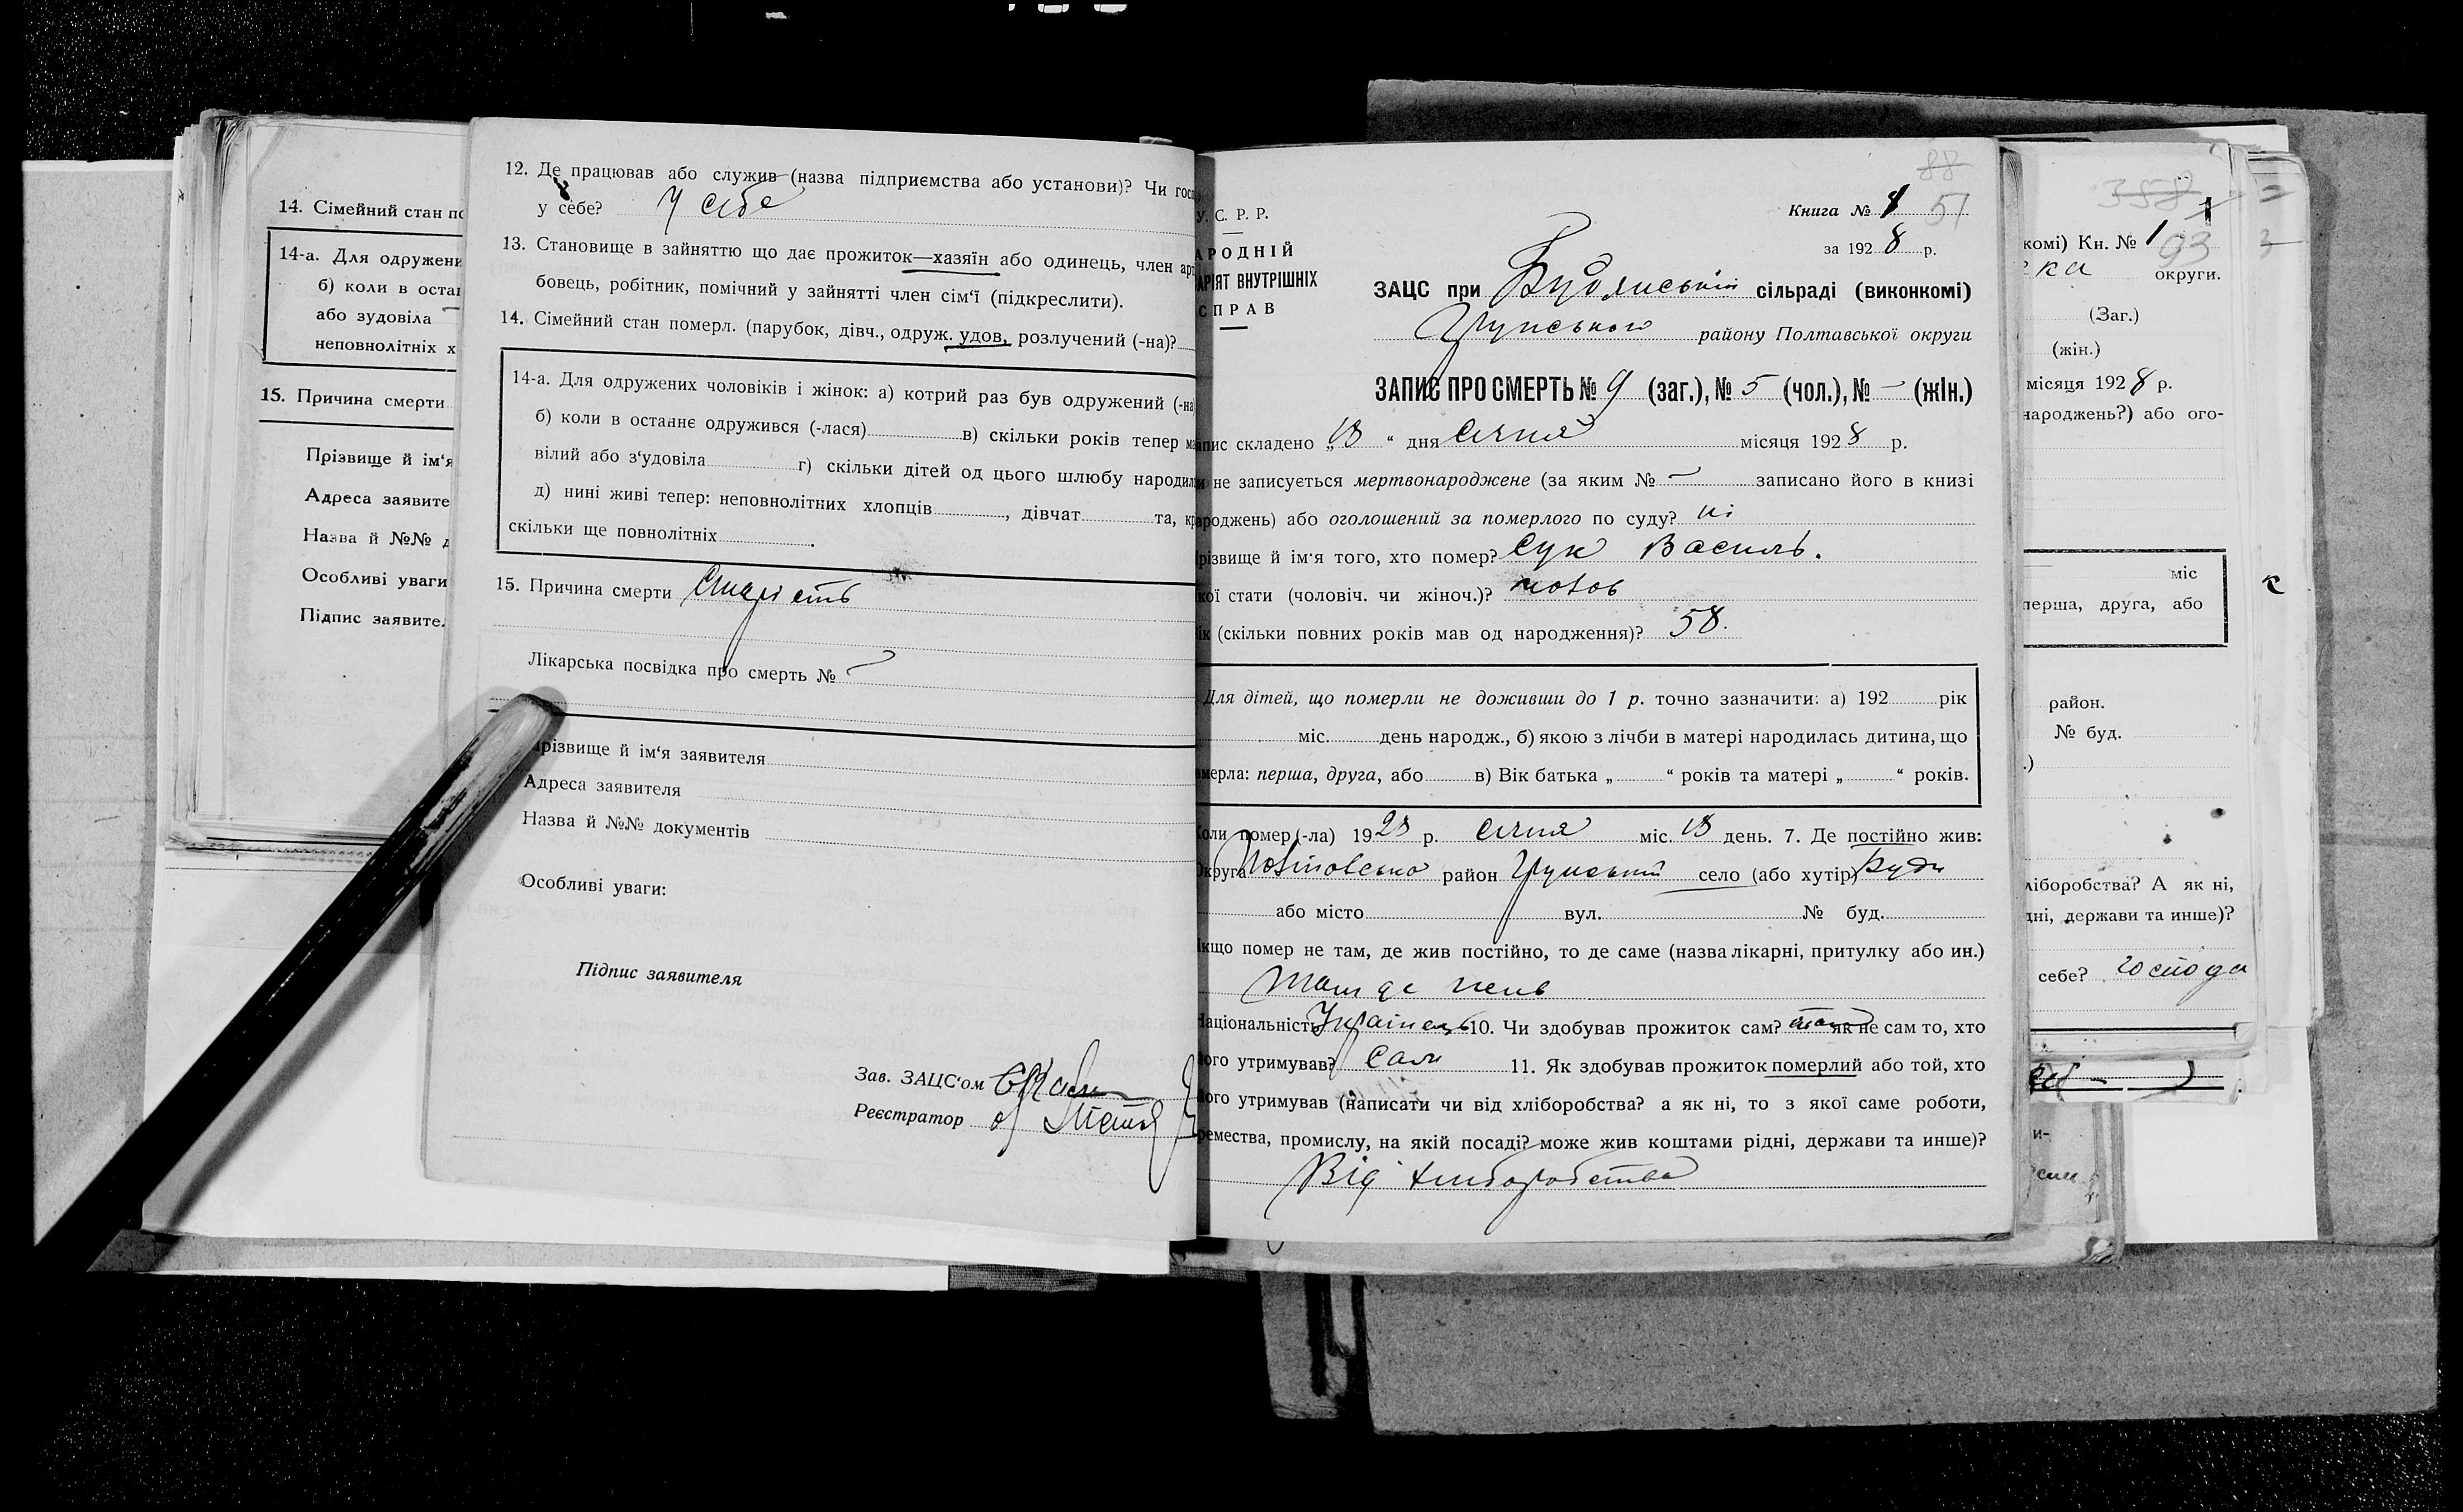 14. Сімейний стан по
14-а. Для одружени
б) коли в оста
або зудовіла
неповнолітніх х
15. Причина смерти
Прізвище й ім'я
Адреса заявите
Назва й №№ д
Особливі уваги
Підпис заявите
12. Де працював або служив (назва підприємства або установи)? Чи госп
у себе? У себе
13. Становище в зайняттю що дає прожиток—хазяїн або одинець, член ар
бовець, робітник, помічний у зайнятті член сім'ї (підкреслити).
14. Сімейний стан померл. (парубок, дівч., одруж. удов, розлучений (-на)?
14-а. Для одружених чоловіків і жінок: а) котрий раз був одружений (-на
б) коли в останнє одружився (-лася) в) скільки років тепер ма
вілий або з'удовіла г) скільки дітей од цього шлюбу народил
д) нині живі тепер: неповнолітних хлопців, дівчат та, кр
скільки ще повнолітніх.
15. Причина смерти Старість
Лікарська посвідка про смерть № —
Прізвище й ім'я заявителя
Адреса заявителя
Назва й №№ документів
Особливі уваги:
Підпис заявителя
Зав. ЗАЦС'ом
Реєстратор
88
У. С. Р. Р.
Книга № 1 51
АРОДНІЙ
за 1928 р.
АРІЯТ ВНУТРІШНІХ
СПРАВ
ЗАЦС при Будянській сільраді (виконкомі)
Грунського району Полтавської округи
ЗАПИС ПРО СМЕРТЬ № 9 (заг.), № 5 (чол.), № — (жін.)
апис складено „18“ дня січня місяця 1928 р.
и не записується мертвонароджене (за яким № — записано його в книзі
ароджень) або оголошений за померлого по суду? ні
різвище й ім'я того, хто помер? Сук Василь.
кої стати (чоловіч. чи жіноч.)? чолов
ік (скільки повних років мав од народження)? 58.
Для дітей, що померли не доживши до 1 р. точно зазначити: а) 192 рік
міс. день народж., б) якою з лічби в матері народилась дитина, що
мерла: перша, друга, або в) Вік батька „ “ років та матері „ “ років.
оли помер (-ла) 1928 р. січня міс. 18 день. 7. Де постійно жив:
Округа Полтовсько район Грунський село (або хутір) Буди
або місто вул. № буд.
кщо помер не там, де жив постійно, то де саме (назва лікарні, притулку або ин.)
там де жив
Національність Українець 10. Чи здобував прожиток сам? як не сам то, хто
його утримував? Сам 11. Як здобував прожиток померлий або той, хто
його утримував (написати чи від хліборобства? а як ні, то з якої саме роботи,
ремества, промислу, на якій посаді? може жив коштами рідні, держави та инше)?
Від хліборобства
358
1
комі) Кн. № 1 93
ка округи.
(Заг.)
(жін.)
місяця 1928 р.
народжень?) або ого-
міс
перша, друга, або
район.
№ буд.
.)
ліборобства? А як ні,
дні, держави та инше)?
себе? господа
и-